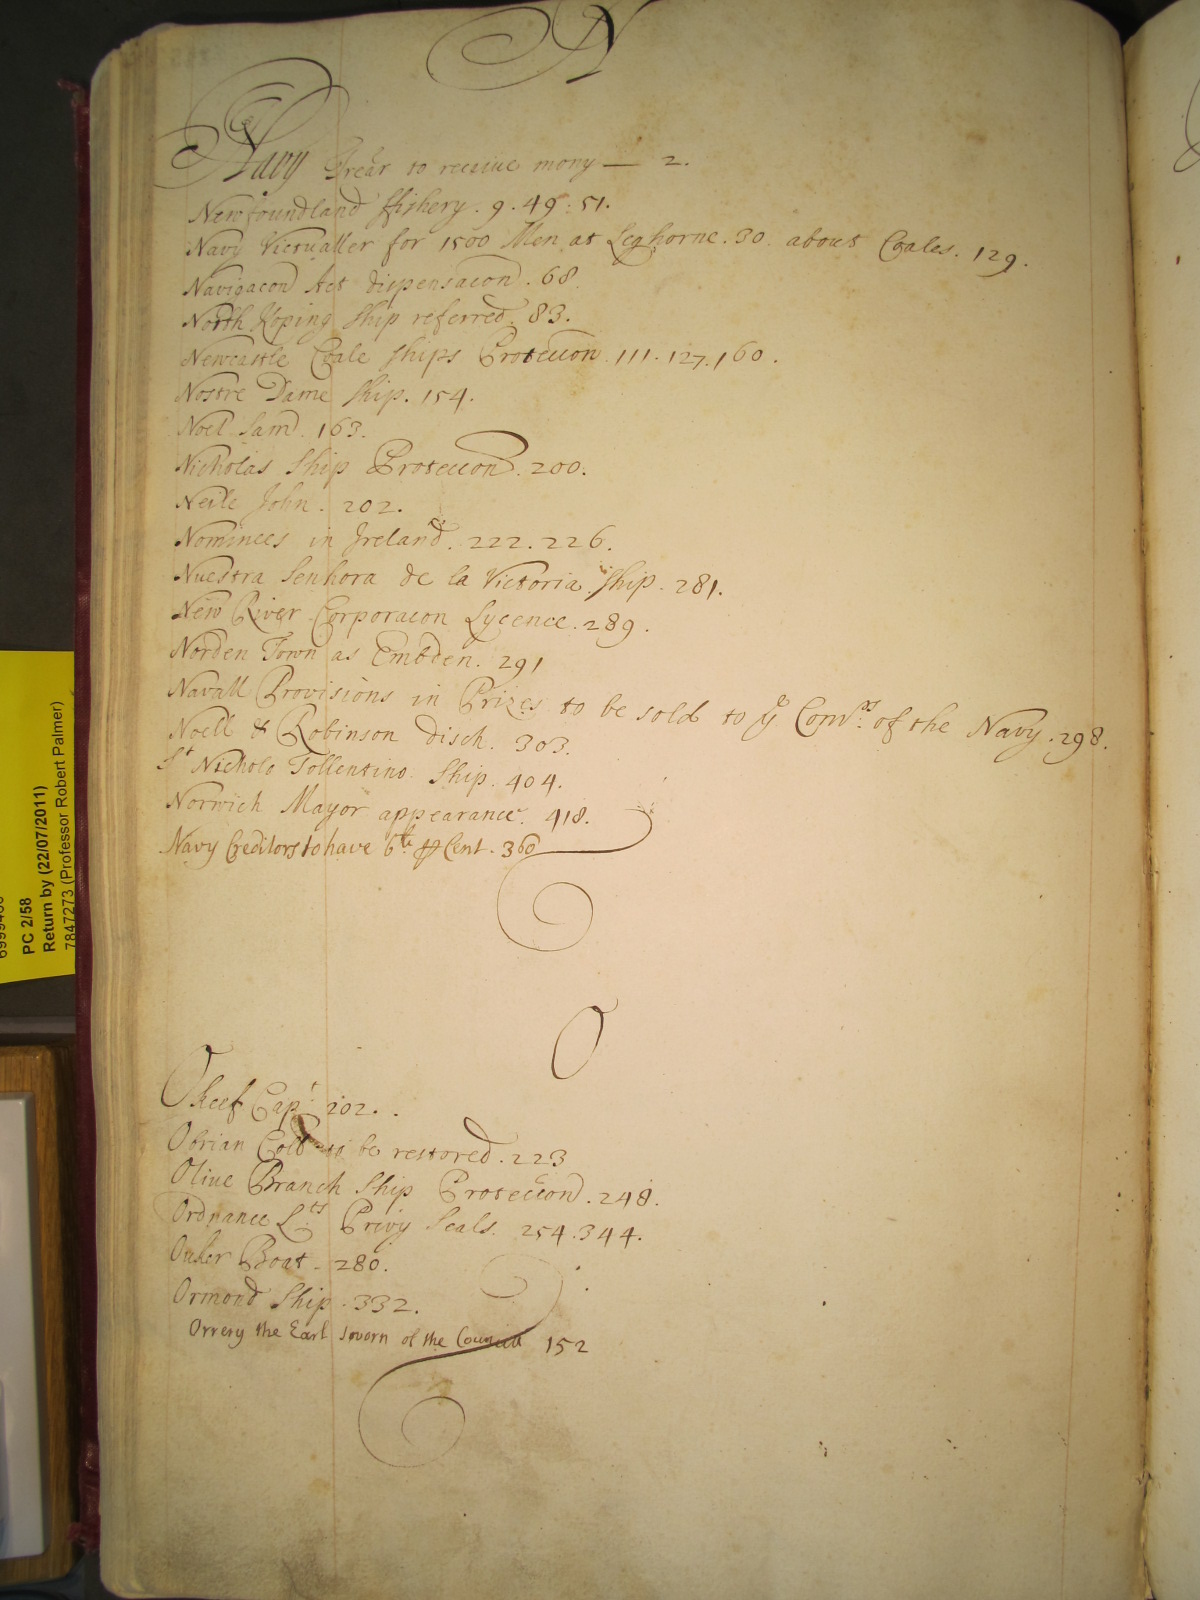 N
Navy Trear to receive mony — 2.
Newfoundland ffishery . 9 . 49 : 51.
Navy Victualler for 1500 Men at Leghorne . 30 . about Coales . 129 .
Navigacon Act dispensacon . 68.
North Koping Ship referred . 83.
Newcastle Coale ships Proteccon . 111 . 127 . 160 .
Nostre Dame ship . 154.
Noel Sam . 163.
Nicholas Ship Proteccon . 200.
Neile John . 202.
Nominees in Ireland . 222 . 226.
Nuestra Senhora de la Victoria ship . 281.
New River Corporacon Lycence . 289 .
Norden Town as Embden . 291
Navall Provisions in Prizes to be sold to ye Comrs. of the Navy . 298.
Noell & Robinson disch . 303.
St Nicholo Tollentino Ship . 404.
Norwich Mayor appearance . 418.
Navy Creditors to have 6li. ⅌ Cent . 360
O
Okeef Capt. 202 . .
Obrian Coll to be restored . 223
Olive Branch Ship Proteccon . 248.
Ordnance Lts Privy Seals . 254 . 344.
Boat . 280.
Ormond Ship . 332.
Orrery the Earl sworn of the Councill 152
PC 2/58
Return by (22/07/2011)
7847273 (Professor Robert Palmer)